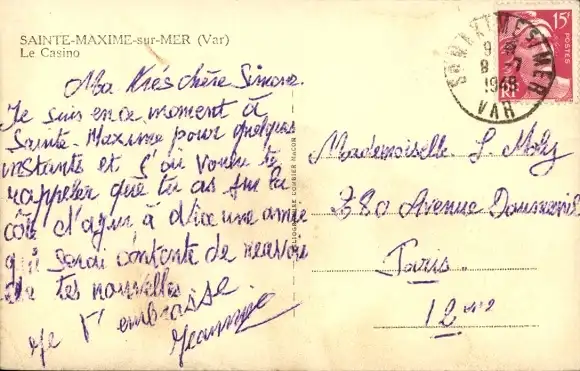 SAINTE-MAXIME-sur-MER (Var)
Le Casino
Ma très chère Simone.
Je suis en ce moment à
Sainte-Maxime pour quelques
instants et j'ai voulu te
rappeler que tu as sur la
côte d'azur à Nice une amie
qui serai contente de recevoir
de tes nouvelles
Je t'embrasse
Mademoiselle S
280 Avenue Daumesnil
Paris.
12
15F
POSTES
RF
STE MAXIME S MER
8-7
1948
VAR
HELIOGRAVURE COMBIER MACON